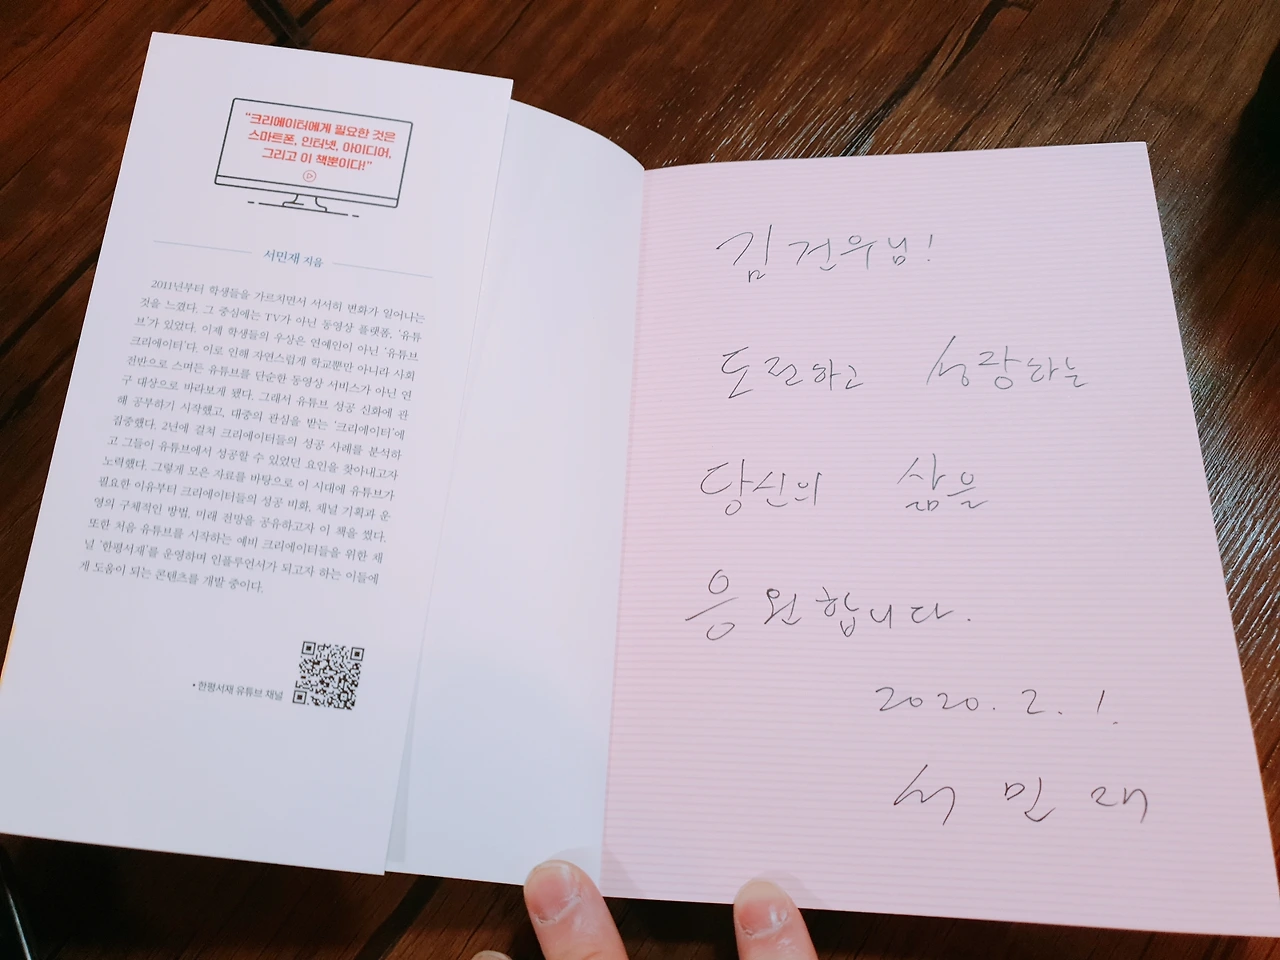 “크리에이터에게 필요한 것은
스마트폰, 인터넷, 아이디어,
그리고 이 책뿐이다!”
서민재 지음
2011년부터 학생들을 가르치면서 서서히 변화가 일어나는
것을 느꼈다. 그 중심에는 TV가 아닌 동영상 플랫폼, ‘유튜
브’가 있었다. 이제 학생들의 우상은 연예인이 아닌 ‘유튜브
크리에이터’다. 이로 인해 자연스럽게 학교뿐만 아니라 사회
전반으로 스며든 유튜브를 단순한 동영상 서비스가 아닌 연
구 대상으로 바라보게 됐다. 그래서 유튜브 성공 신화에 관
해 공부하기 시작했고, 대중의 관심을 받는 ‘크리에이터’에
집중했다. 2년에 걸쳐 크리에이터들의 성공 사례를 분석하
고 그들이 유튜브에서 성공할 수 있었던 요인을 찾아내고자
노력했다. 그렇게 모은 자료를 바탕으로 이 시대에 유튜브가
필요한 이유부터 크리에이터들의 성공 비화, 채널 기획과 운
영의 구체적인 방법, 미래 전망을 공유하고자 이 책을 썼다.
또한 처음 유튜브를 시작하는 예비 크리에이터들을 위한 채
널 ‘한평서재’를 운영하며 인플루언서가 되고자 하는 이들에
게 도움이 되는 콘텐츠를 개발 중이다.
• 한평서재 유튜브 채널
김건우님!
도전하고 성장하는
당신의 삶을
응원합니다.
2020. 2. 1.
서민재